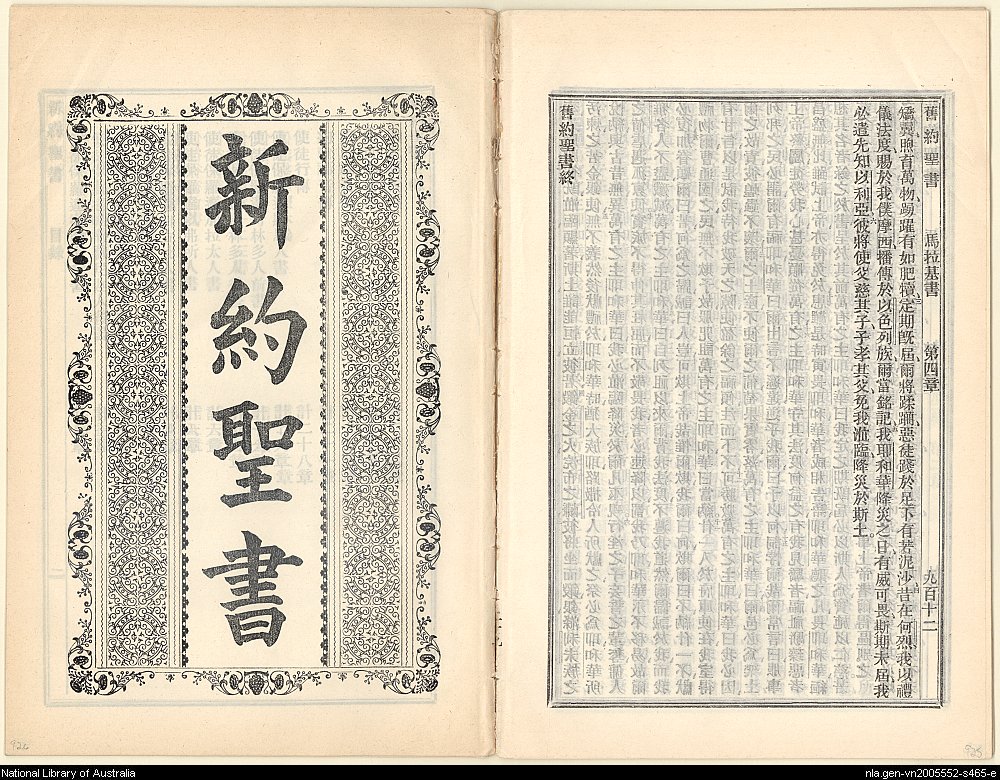 舊約聖書　馬拉基書　第四章　九百十二
翼煦育萬物、踴躍有如肥犢、定期旣屆、爾將蹂躪惡徒、踐於足下、有若泥沙、昔在何烈、我以禮
儀法度、賜於我僕摩西、播傳於以色列族、爾當銘記、我耶和華降災之日、有威可畏、斯期未屆、我
必遣先知以利亞、彼將使父慈其子、子孝其父、免我涖臨、降災於斯土。
舊約聖書終
新約聖書
925
National Library of Australia
nla.gen-vn2005552-s465-e